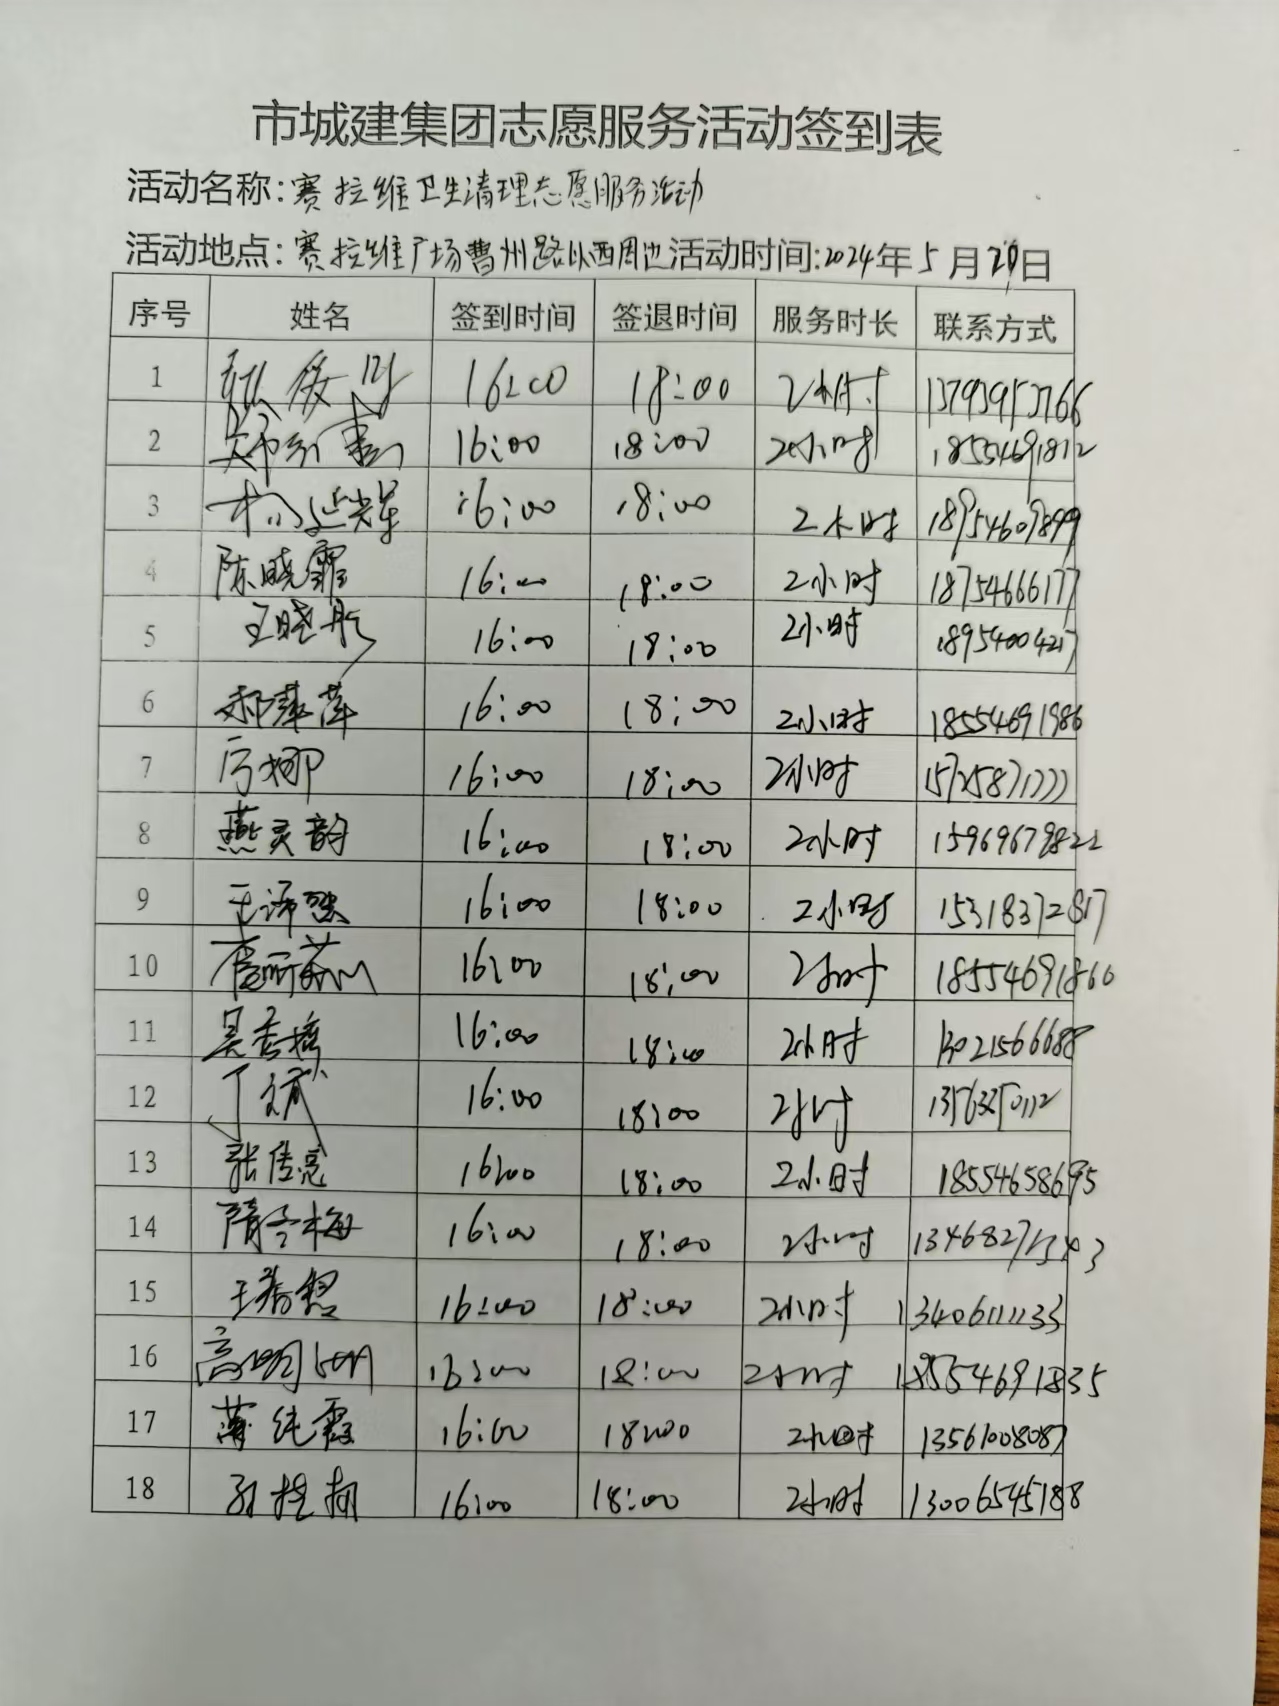 市城建集团志愿服务活动签到表
活动名称:赛拉维卫生清理志愿服务活动
活动地点:赛拉维广场曹州路以西周边活动时间:2024年5月日
序号 姓名 签到时间 签退时间 服务时长 联系方式
1 16:00 18:00 2小时
2 16:00 18:00 2小时 18554691812
3 16:00 18:00 2小时 18954609899
4 陈晓霏 16:00 18:00 2小时 18754666177
5 王晓彤 16:00 18:00 2小时 18954004217
6 郝萍萍 16:00 18:00 2小时 18554691986
7 16:00 18:00 2小时 15725871777
8 燕灵韵 16:00 18:00 2小时 15969679822
9 16:00 18:00 2小时 15318372817
10 16:00 18:00 2小时 18554691860
11 16:00 18:00 2小时 13021566688
12 丁斌 16:00 18:00 2小时
13 张佳亮 16:00 18:00 2小时 18554658695
14 16:00 18:00 2小时
15 16:00 18:00 2小时 13406111133
16 16:00 18:00 2小时 18554691835
17 薄纯霞 16:00 18:00 2小时 13561008087
18 16:00 18:00 2小时 13006545188